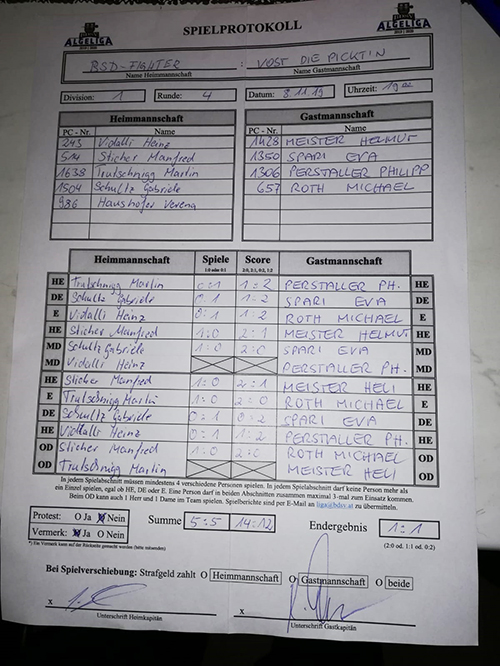 ALGELIGA
SPIELPROTOKOLL
ALGELIGA
BSD-FIGHTER : VOST DIE PICKT'N
Name Heimmannschaft Name Gastmannschaft
Division: 1 Runde: 4 Datum: 8.11.19 Uhrzeit: 19 00
Heimmannschaft Gastmannschaft
PC - Nr. Name PC - Nr. Name
243 Vidalli Heinz 1428 MEISTER HELMUT
514 Sticher Manfred 1350 SPARI EVA
1638 Trutschnigg Martin 1306 PERSTALLER PHILIPP
1504 Schultz Gabriele 657 ROTH MICHAEL
986 Haushofer Verena
Heimmannschaft Spiele Score Gastmannschaft
1:0 oder 0:1 2:0, 2:1, 0:2, 1:2
HE Trutschnigg Martin 0:1 1:2 PERSTALLER PH. HE
DE Schultz Gabriele 0:1 1:2 SPARI EVA DE
E Vidalli Heinz 0:1 1:2 ROTH MICHAEL E
HE Sticher Manfred 1:0 2:1 MEISTER HELMUT HE
MD Schultz Gabriele 1:0 2:0 SPARI EVA MD
MD Vidalli Heinz PERSTALLER PH. MD
HE Sticher Manfred 1:0 2:1 MEISTER HELI HE
E Trutschnigg Martin 1:0 2:0 ROTH MICHAEL E
DE Schultz Gabriele 0:1 0:2 SPARI EVA DE
HE Vidalli Heinz 0:1 1:2 PERSTALLER PH. HE
OD Sticher Manfred 1:0 2:0 ROTH MICHAEL OD
OD Trutschnigg Martin MEISTER HELI OD
In jedem Spielabschnitt müssen mindestens 4 verschiedene Personen spielen. In jedem Spielabschnitt darf keine Person mehr als
ein Einzel spielen, egal ob HE, DE oder E. Eine Person darf in beiden Abschnitten zusammen maximal 3-mal zum Einsatz kommen.
Beim OD kann auch 1 Herr und 1 Dame im Team spielen. Spielberichte sind per E-Mail an liga@bdsv.at zu übermitteln.
Protest: O Ja Nein Summe 5:5 14:12 Endergebnis 1:1
Vermerk: Ja O Nein (2:0 od. 1:1 od. 0:2)
*) Ein Vermerk kann auf der Rückseite gemacht werden (bitte mitsenden)
Bei Spielverschiebung: Strafgeld zahlt O Heimmannschaft O Gastmannschaft O beide
x x
Unterschrift Heimkapitän Unterschrift Gastkapitän